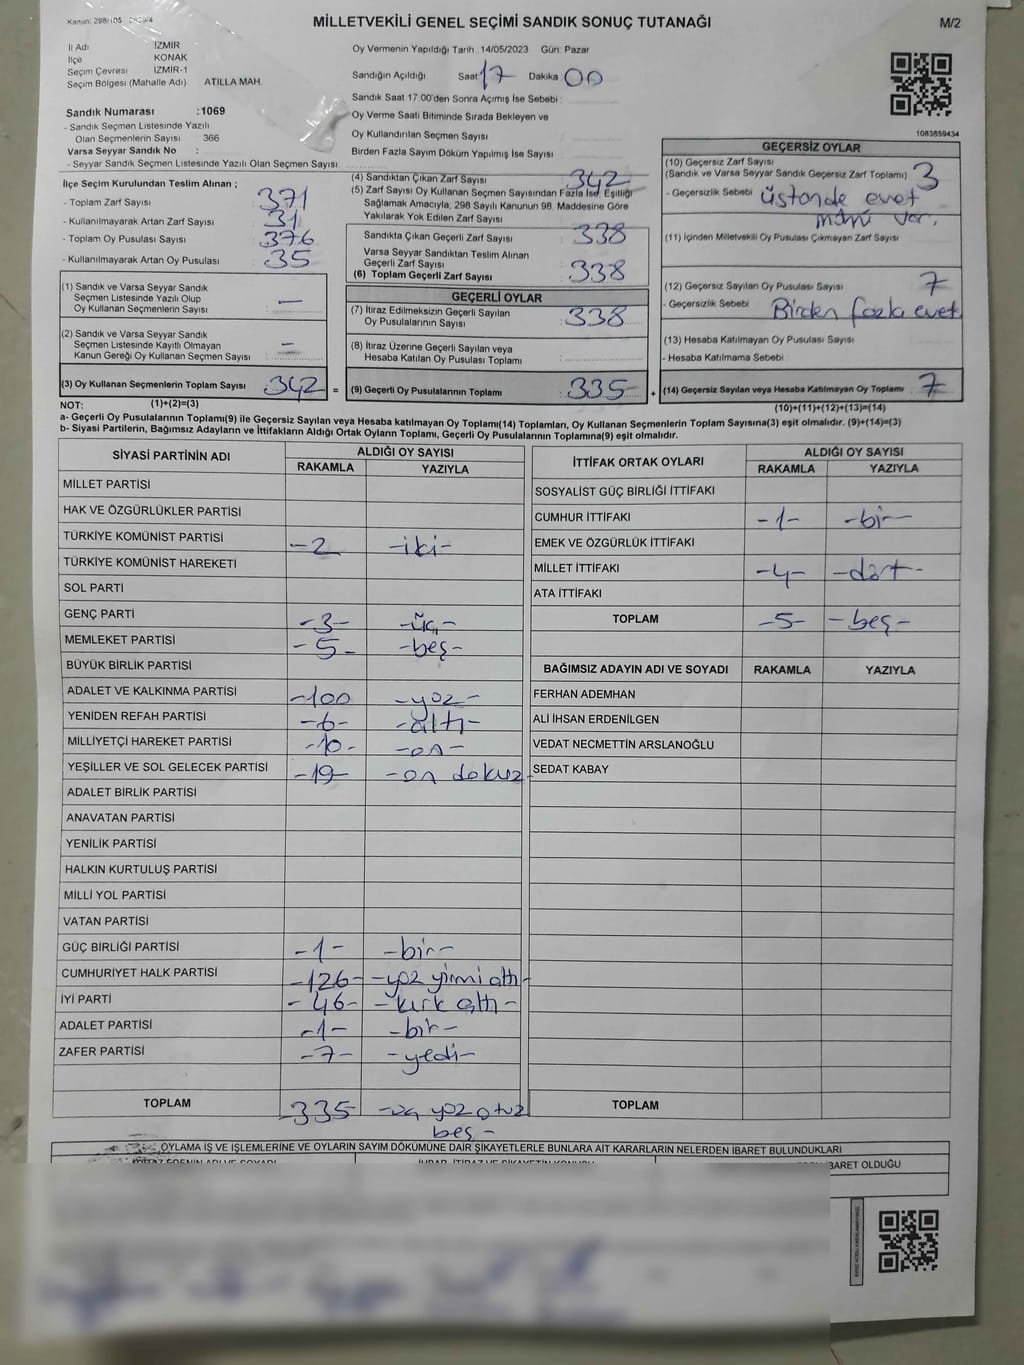 Kanun: 298/105
MİLLETVEKİLİ GENEL SEÇİMİ SANDIK SONUÇ TUTANAĞI
M/2
İl Adı İZMİR
İlçe KONAK
Seçim Çevresi İZMİR-1
Seçim Bölgesi (Mahalle Adı) ATİLLA MAH.
Sandık Numarası :1069
- Sandık Seçmen Listesinde Yazılı
Olan Seçmenlerin Sayısı 366
Varsa Seyyar Sandık No :
- Seyyar Sandık Seçmen Listesinde Yazılı Olan Seçmen Sayısı
Oy Vermenin Yapıldığı Tarih : 14/05/2023 Gün: Pazar
Sandığın Açıldığı Saat 17 Dakika 00
Sandık Saat 17:00'den Sonra Açımış İse Sebebi :
Oy Verme Saati Bitiminde Sırada Bekleyen ve
Oy Kullandırılan Seçmen Sayısı
Birden Fazla Sayım Döküm Yapılmış İse Sayısı
1083859434
İlçe Seçim Kurulundan Teslim Alınan ;
- Toplam Zarf Sayısı 371
- Kullanılmayarak Artan Zarf Sayısı 31
- Toplam Oy Pusulası Sayısı 376
- Kullanılmayarak Artan Oy Pusulası 35
(1) Sandık ve Varsa Seyyar Sandık
Seçmen Listesinde Yazılı Olup
Oy Kullanan Seçmenlerin Sayısı —
(2) Sandık ve Varsa Seyyar Sandık
Seçmen Listesinde Kayıtlı Olmayan
Kanun Gereği Oy Kullanan Seçmen Sayısı –
(3) Oy Kullanan Seçmenlerin Toplam Sayısı 342 =
(4) Sandıktan Çıkan Zarf Sayısı 342
(5) Zarf Sayısı Oy Kullanan Seçmen Sayısından Fazla İse, Eşitliği
Sağlamak Amacıyla, 298 Sayılı Kanunun 98. Maddesine Göre
Yakılarak Yok Edilen Zarf Sayısı
Sandıkta Çıkan Geçerli Zarf Sayısı 338
Varsa Seyyar Sandıktan Teslim Alınan
Geçerli Zarf Sayısı
(6) Toplam Geçerli Zarf Sayısı 338
GEÇERLİ OYLAR
(7) İtiraz Edilmeksizin Geçerli Sayılan
Oy Pusulalarının Sayısı 338
(8) İtiraz Üzerine Geçerli Sayılan veya
Hesaba Katılan Oy Pusulası Toplamı
(9) Geçerli Oy Pusulalarının Toplamı 335 +
GEÇERSİZ OYLAR
(10) Geçersiz Zarf Sayısı
(Sandık ve Varsa Seyyar Sandık Geçersiz Zarf Toplamı) 3
- Geçersizlik Sebebi üstünde evet
mührü var.
(11) İçinden Milletvekili Oy Pusulası Çıkmayan Zarf Sayısı
(12) Geçersiz Sayılan Oy Pusulası Sayısı 7
- Geçersizlik Sebebi Birden fazla evet
(13) Hesaba Katılmayan Oy Pusulası Sayısı
- Hesaba Katılmama Sebebi
(14) Geçersiz Sayılan veya Hesaba Katılmayan Oy Toplamı 7
NOT: (1)+(2)=(3)
(10)+(11)+(12)+(13)=(14)
a- Geçerli Oy Pusulalarının Toplamı(9) ile Geçersiz Sayılan veya Hesaba katılmayan Oy Toplamı(14) Toplamları, Oy Kullanan Seçmenlerin Toplam Sayısına(3) eşit olmalıdır. (9)+(14)=(3)
b- Siyasi Partilerin, Bağımsız Adayların ve İttifakların Aldığı Ortak Oyların Toplamı, Geçerli Oy Pusulalarının Toplamına(9) eşit olmalıdır.
SİYASİ PARTİNİN ADI ALDIĞI OY SAYISI
RAKAMLA YAZIYLA
MİLLET PARTİSİ
HAK VE ÖZGÜRLÜKLER PARTİSİ
TÜRKİYE KOMÜNİST PARTİSİ -2 -iki-
TÜRKİYE KOMÜNİST HAREKETİ
SOL PARTİ
GENÇ PARTİ -3- -üç-
MEMLEKET PARTİSİ -5- -beş-
BÜYÜK BİRLİK PARTİSİ
ADALET VE KALKINMA PARTİSİ -100 -yüz-
YENİDEN REFAH PARTİSİ -6- -altı-
MİLLİYETÇİ HAREKET PARTİSİ -10- -on-
YEŞİLLER VE SOL GELECEK PARTİSİ -19- -on dokuz-
ADALET BİRLİK PARTİSİ
ANAVATAN PARTİSİ
YENİLİK PARTİSİ
HALKIN KURTULUŞ PARTİSİ
MİLLİ YOL PARTİSİ
VATAN PARTİSİ
GÜÇ BİRLİĞİ PARTİSİ -1- -bir-
CUMHURİYET HALK PARTİSİ -126- -yüz yirmi altı-
İYİ PARTİ -46- -kırk altı-
ADALET PARTİSİ -1- -bir-
ZAFER PARTİSİ -7- -yedi-
TOPLAM -335- -üç yüz otuz
beş-
İTTİFAK ORTAK OYLARI ALDIĞI OY SAYISI
RAKAMLA YAZIYLA
SOSYALİST GÜÇ BİRLİĞİ İTTİFAKI
CUMHUR İTTİFAKI -1- -bir-
EMEK VE ÖZGÜRLÜK İTTİFAKI
MİLLET İTTİFAKI -4- -dört-
ATA İTTİFAKI
TOPLAM -5- -beş-
BAĞIMSIZ ADAYIN ADI VE SOYADI RAKAMLA YAZIYLA
FERHAN ADEMHAN
ALİ İHSAN ERDENİLGEN
VEDAT NECMETTİN ARSLANOĞLU
SEDAT KABAY
TOPLAM
OYLAMA İŞ VE İŞLEMLERİNE VE OYLARIN SAYIM DÖKÜMÜNE DAİR ŞİKAYETLERLE BUNLARA AİT KARARLARIN NELERDEN İBARET BULUNDUKLARI
İBARET OLDUĞU